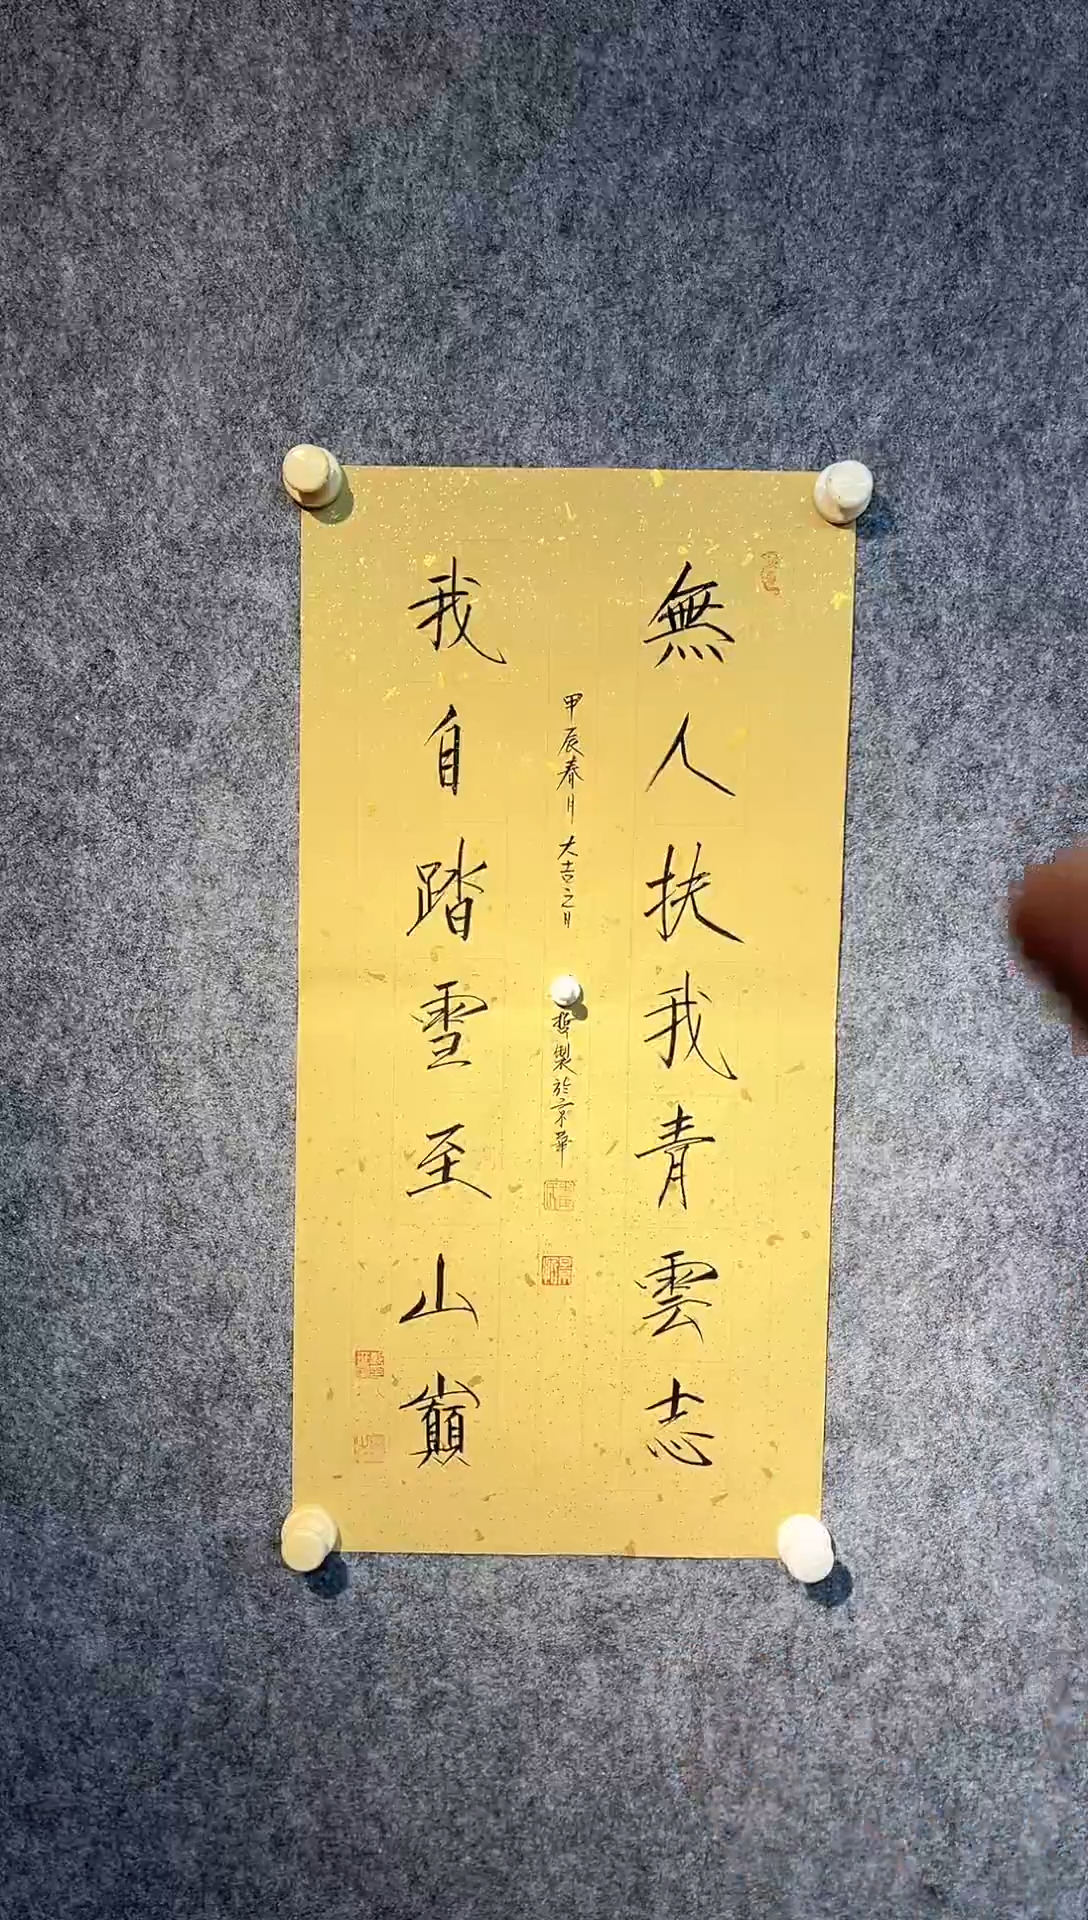 無人扶我青雲志
甲辰春月大吉之日
製於京華
我自踏雪至山巔